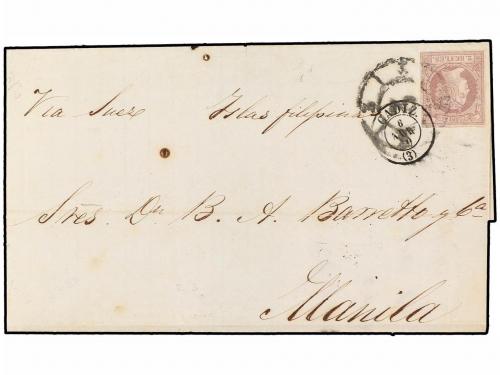 2. REALES.
Via Suez Islas filipinas
CADIZ.
6
(3)
Sres. Dn. B. A. Barretto y Ca
Manila